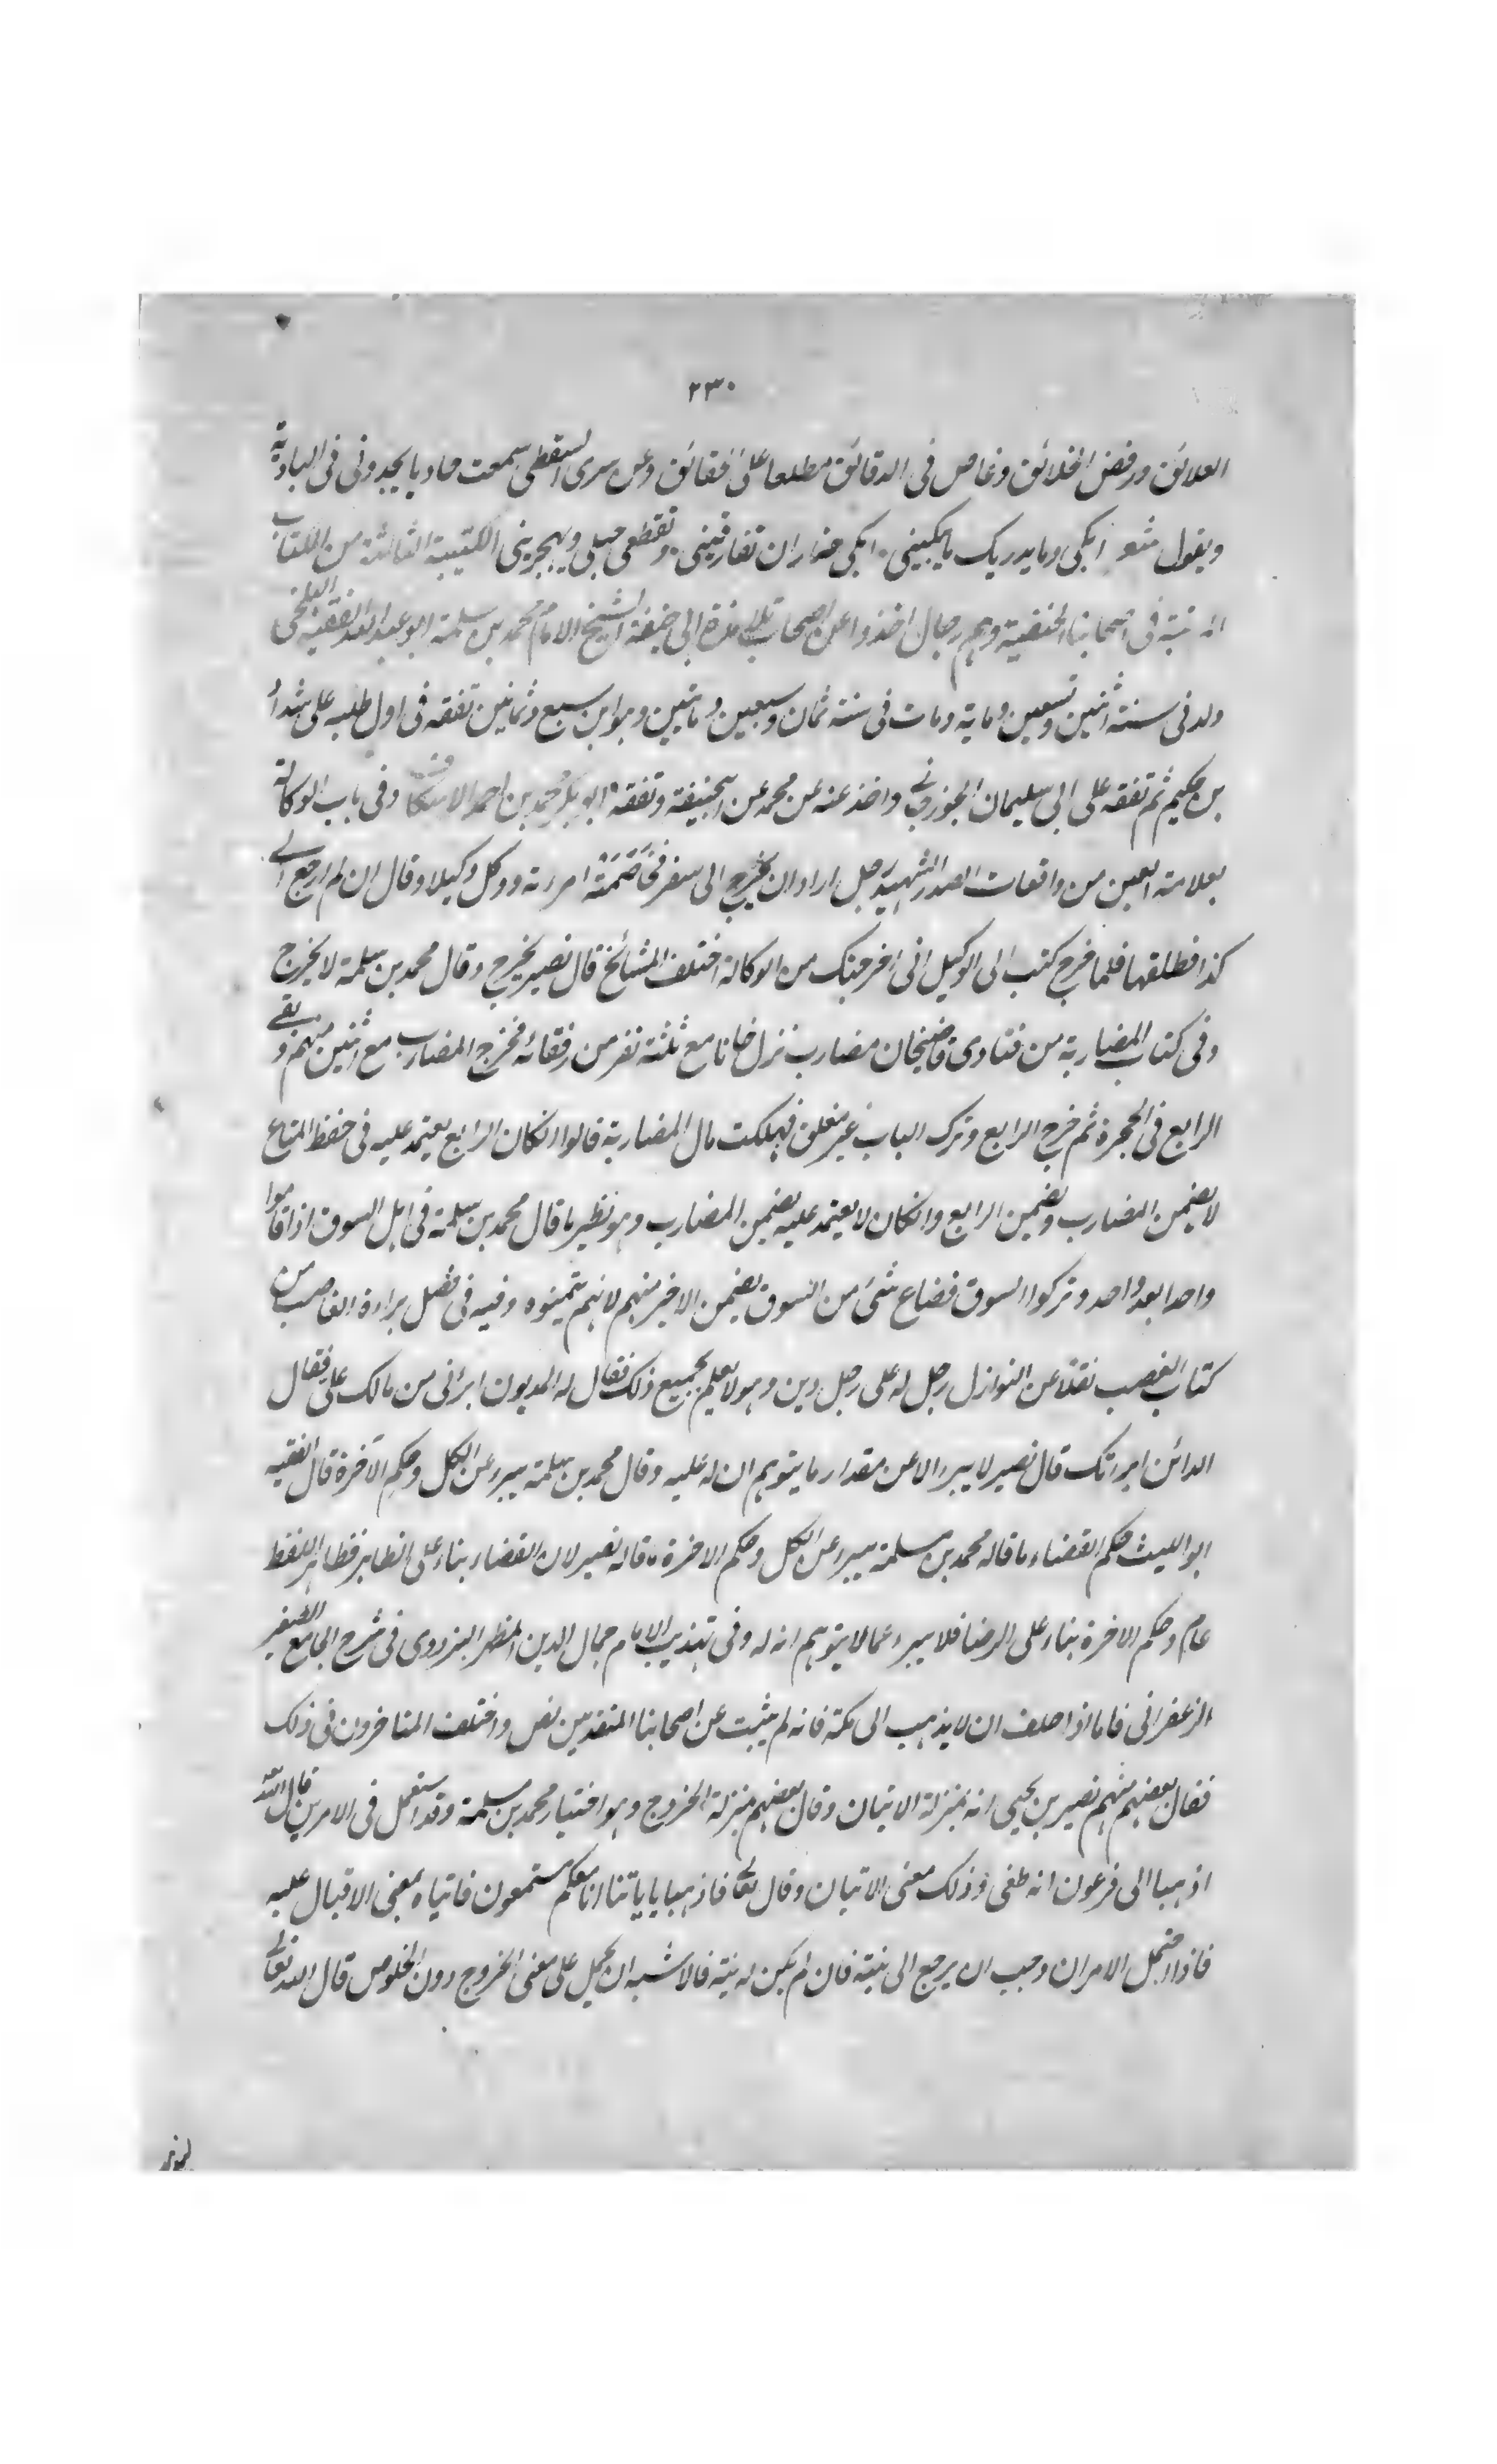 ٢٣٠
العلائق ورفض الخلائق وغاص في الدقائق مطلعا على الحقائق وعن سرى السقطى سمعت حاديا يحدونى فى البادية
ويقول شعر ابكى وما يدريك ما يبكينى ابكى حذار ان تفارقينى وتقطعى حبلى وتهجرينى الكتيبة الثالثة من الكتاب
فى اصحابنا الحنفية وهم رجال اخذوا عن اصحاب تلامذة ابى حنيفة الشيخ الامام محمد بن سلمة ابو عبد الله الفقيه البلخى
ولد فى سنة اثنين وتسعين ومايه ومات فى سنة ثمان وسبعين ومائتين وهو ابن سبع وثمانين تفقه فى اول طلبه على شداد
بن حكيم ثم تفقه على ابى سليمان الجوزجانى واخذ عنه عن محمد عن ابيحنيفة وتفقه ابو بكر محمد بن احمد الاسكاف وفى باب الوكالة
بعلامة العين من واقعات الصدر الشهيد رجل اراد ان يخرج الى سفر فخاصمته امرءته ووكل وكيلا وقال ان لم ارجع الى
كذا فطلقها فلما خرج كتب الى الوكيل انى اخرجتك من الوكالة اختلف المشائخ قال نصير يخرج وقال محمد بن سلمة لا يخرج
وفى كتاب المضاربة من فتاوى قاضيخان مضارب نزل خانا مع ثلثة نفر من رفقائه فخرج المضارب مع اثنين منهم وبقى
الرابع فى الحجرة ثم خرج الرابع وترك الباب غير مغلق فهلكت مال المضاربة قالوا انكان الرابع يعتمد عليه فى حفظ المتاع
لا يضمن المضارب ويضمن الرابع وانكان لا يعتمد عليه يضمن المضارب وهو نظير ما قال محمد بن سلمة فى اهل السوق اذا قاموا
واحدا بعد واحد وتركوا السوق فضاع شئ من السوق يضمن الاخير منهم لانهم وفيه فى فصل براءة الغاصب من
كتاب الغصب نقلا عن النوازل رجل له على رجل دين وهو لا يعلم بجميع ذلك فقال له المديون ابرانى من مالك على فقال
الدائن ابراتك قال نصير لا يبرء الا عن مقدار ما يتوهم ان له عليه وقال محمد بن سلمة يبرء عن الكل وحكم الآخرة قال الفقيه
ابو الليث حكم القضاء ما قاله محمد بن سلمة يبرء عن الكل وحكم الاخرة ما قاله نصير لان القضاء بناء على الظاهر فظاهر اللفظ
عام وحكم الاخرة بناء على الرضا فلا يبرء عما لا يتوهم انه له وفى تهذيب الامام جمال الدين المطهر البزدوى فى شرح الجامع الصغير
الزعفرانى فاما اذا حلف ان لا يذهب الى مكة فانه لم يثبت عن اصحابنا المتقدمين نص واختلف المتاخرون فى ذلك
فقال بعضهم منهم نصير بن يحيى انه بمنزلة الاتيان وقال بعضهم بمنزلة الخروج وهو اختيار محمد بن سلمة وقد استعمل فى الامرين قال الله تعالى
اذهبا الى فرعون انه طغى وذلك معنى الاتيان وقال تعالى فاذهبا باياتنا انا معكم مستمعون فاتياه بمعنى الاقبال عليه
فاذا احتمل الامران وجب ان يرجع الى نيته فان لم يكن له نية فالاشبه ان يحمل على معنى الخروج دون الخلوص قال الله تعالى